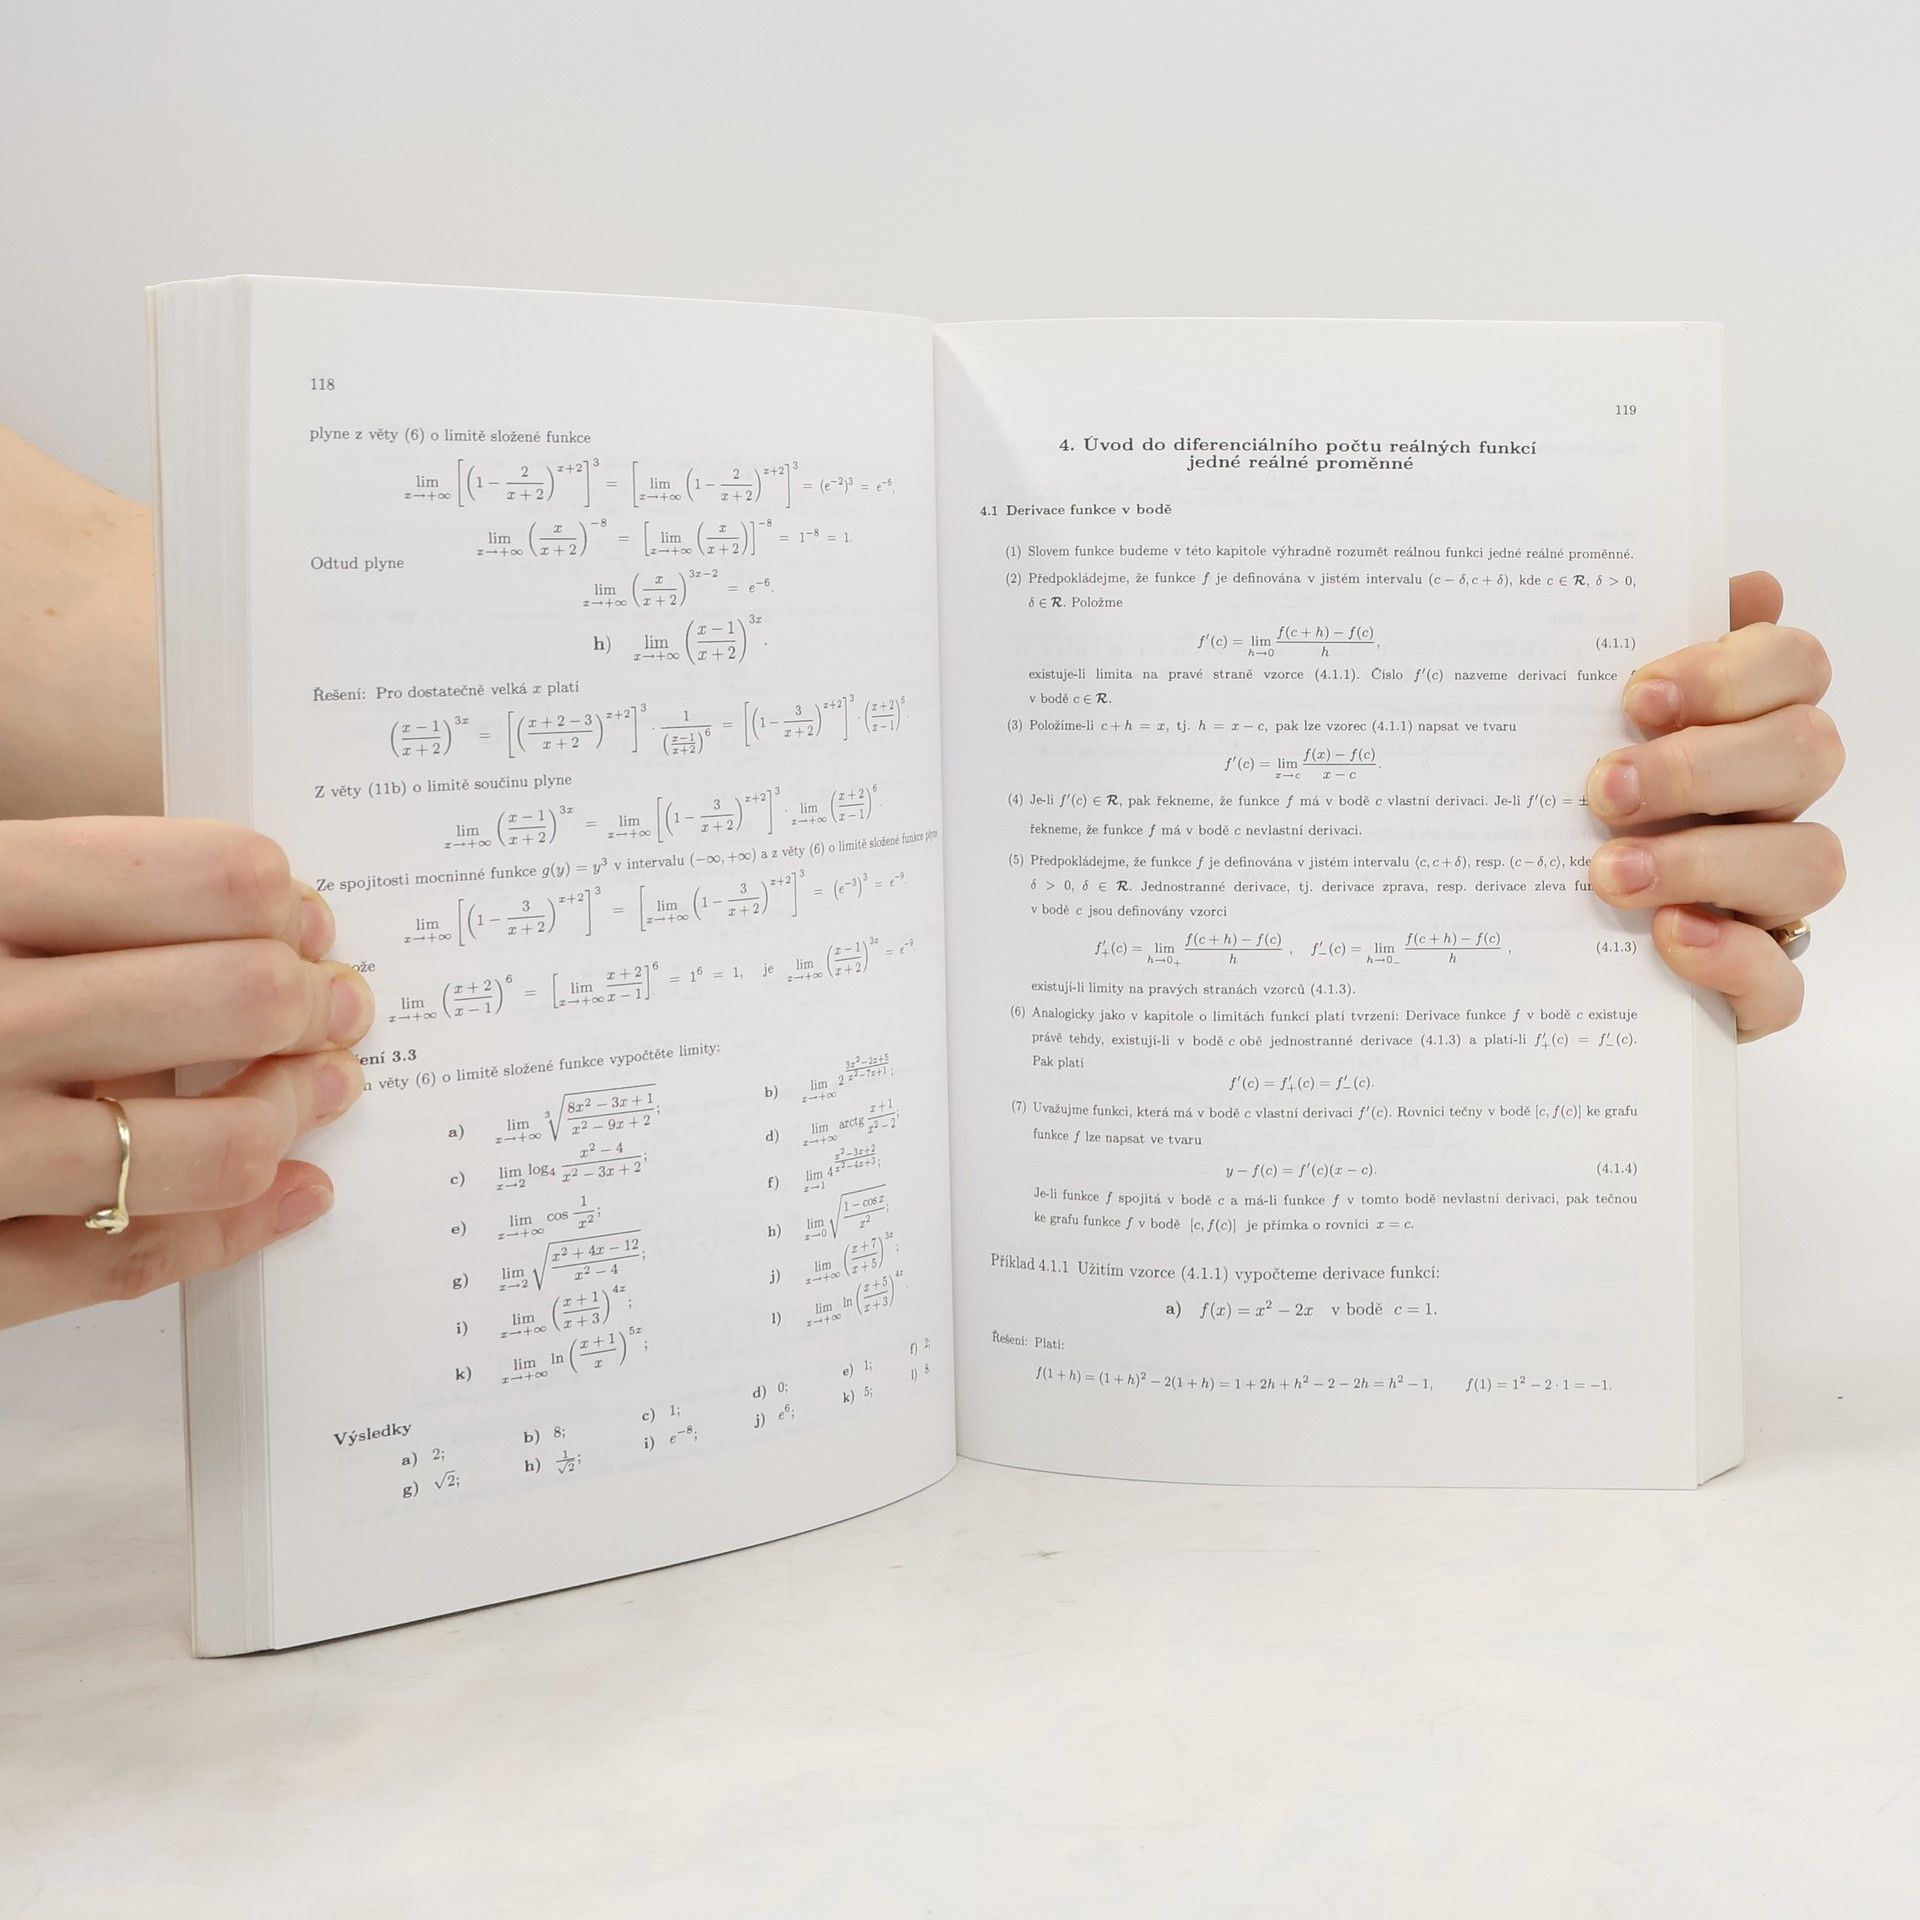 118
plyne z věty (6) o limitě složené funkce
lim x→+∞ [(1 − 2/(x+2))^{x+2}]^3 = [lim x→+∞ (1 − 2/(x+2))^{x+2}]^3 = (e^{−2})^3 = e^{−6},
lim x→+∞ (x/(x+2))^{−8} = [lim x→+∞ (x/(x+2))]^{−8} = 1^{−8} = 1.
Odtud plyne
lim x→+∞ (x/(x+2))^{3x−2} = e^{−6}.
h) lim x→+∞ ((x−1)/(x+2))^{3x}.
Řešení: Pro dostatečně velká x platí
((x−1)/(x+2))^{3x} = [((x+2−3)/(x+2))^{x+2}]^3 · 1/((x−1)/(x+2))^6 = [(1 − 3/(x+2))^{x+2}]^3 · ((x+2)/(x−1))^6.
Z věty (11b) o limitě součinu plyne
lim x→+∞ ((x−1)/(x+2))^{3x} = lim x→+∞ [(1 − 3/(x+2))^{x+2}]^3 · lim x→+∞ ((x+2)/(x−1))^6.
Ze spojitosti mocninné funkce g(y) = y^3 v intervalu (−∞, +∞) a z věty (6) o limitě složené funkce plyne
lim x→+∞ [(1 − 3/(x+2))^{x+2}]^3 = [lim x→+∞ (1 − 3/(x+2))^{x+2}]^3 = (e^{−3})^3 = e^{−9}.
ože
lim x→+∞ ((x+2)/(x−1))^6 = [lim x→+∞ (x+2)/(x−1)]^6 = 1^6 = 1, je lim x→+∞ ((x−1)/(x+2))^{3x} = e^{−9}.
ení 3.3
věty (6) o limitě složené funkce vypočtěte limity:
a) lim x→+∞ ∛((8x^2 − 3x + 1)/(x^2 − 9x + 2)); b) lim x→+∞ 2^{(3x^2−2x+5)/(x^2−7x+1)};
c) lim x→2 log_4 (x^2 − 4)/(x^2 − 3x + 2); d) lim x→+∞ arctg (x+1)/(x^2−2);
e) lim x→+∞ cos 1/x^2; f) lim x→1 4^{(x^2−3x+2)/(x^2−4x+3)};
g) lim x→2 √((x^2 + 4x − 12)/(x^2 − 4)); h) lim x→0 √((1 − cos x)/x^2);
i) lim x→+∞ ((x+1)/(x+3))^{4x}; j) lim x→+∞ ((x+7)/(x+5))^{3x};
k) lim x→+∞ ln ((x+1)/x)^{5x}; l) lim x→+∞ ln ((x+5)/(x+3))^{4x}.
Výsledky
a) 2; b) 8; c) 1; d) 0; e) 1; f) 2;
g) √2; h) 1/√2; i) e^{−8}; j) e^6; k) 5; l) 8
119
4. Úvod do diferenciálního počtu reálných funkcí
jedné reálné proměnné
4.1 Derivace funkce v bodě
(1) Slovem funkce budeme v této kapitole výhradně rozumět reálnou funkci jedné reálné proměnné.
(2) Předpokládejme, že funkce f je definována v jistém intervalu (c − δ, c + δ), kde c ∈ R, δ > 0,
δ ∈ R. Položme
f′(c) = lim h→0 (f(c + h) − f(c))/h, (4.1.1)
existuje-li limita na pravé straně vzorce (4.1.1). Číslo f′(c) nazveme derivací funkce
v bodě c ∈ R.
(3) Položíme-li c + h = x, tj. h = x − c, pak lze vzorec (4.1.1) napsat ve tvaru
f′(c) = lim x→c (f(x) − f(c))/(x − c).
(4) Je-li f′(c) ∈ R, pak řekneme, že funkce f má v bodě c vlastní derivaci. Je-li f′(c) = ±
řekneme, že funkce f má v bodě c nevlastní derivaci.
(5) Předpokládejme, že funkce f je definována v jistém intervalu ⟨c, c + δ), resp. (c − δ, c⟩, kde
δ > 0, δ ∈ R. Jednostranné derivace, tj. derivace zprava, resp. derivace zleva fun
v bodě c jsou definovány vzorci
f′₊(c) = lim h→0₊ (f(c + h) − f(c))/h , f′₋(c) = lim h→0₋ (f(c + h) − f(c))/h , (4.1.3)
existují-li limity na pravých stranách vzorců (4.1.3).
(6) Analogicky jako v kapitole o limitách funkcí platí tvrzení: Derivace funkce f v bodě c existuje
právě tehdy, existují-li v bodě c obě jednostranné derivace (4.1.3) a platí-li f′₊(c) = f′₋(c).
Pak platí
f′(c) = f′₊(c) = f′₋(c).
(7) Uvažujme funkci, která má v bodě c vlastní derivaci f′(c). Rovnici tečny v bodě [c, f(c)] ke grafu
funkce f lze napsat ve tvaru
y − f(c) = f′(c)(x − c). (4.1.4)
Je-li funkce f spojitá v bodě c a má-li funkce f v tomto bodě nevlastní derivaci, pak tečnou
ke grafu funkce f v bodě [c, f(c)] je přímka o rovnici x = c.
Příklad 4.1.1 Užitím vzorce (4.1.1) vypočteme derivace funkcí:
a) f(x) = x^2 − 2x v bodě c = 1.
Řešení: Platí:
f(1 + h) = (1 + h)^2 − 2(1 + h) = 1 + 2h + h^2 − 2 − 2h = h^2 − 1, f(1) = 1^2 − 2 · 1 = −1.